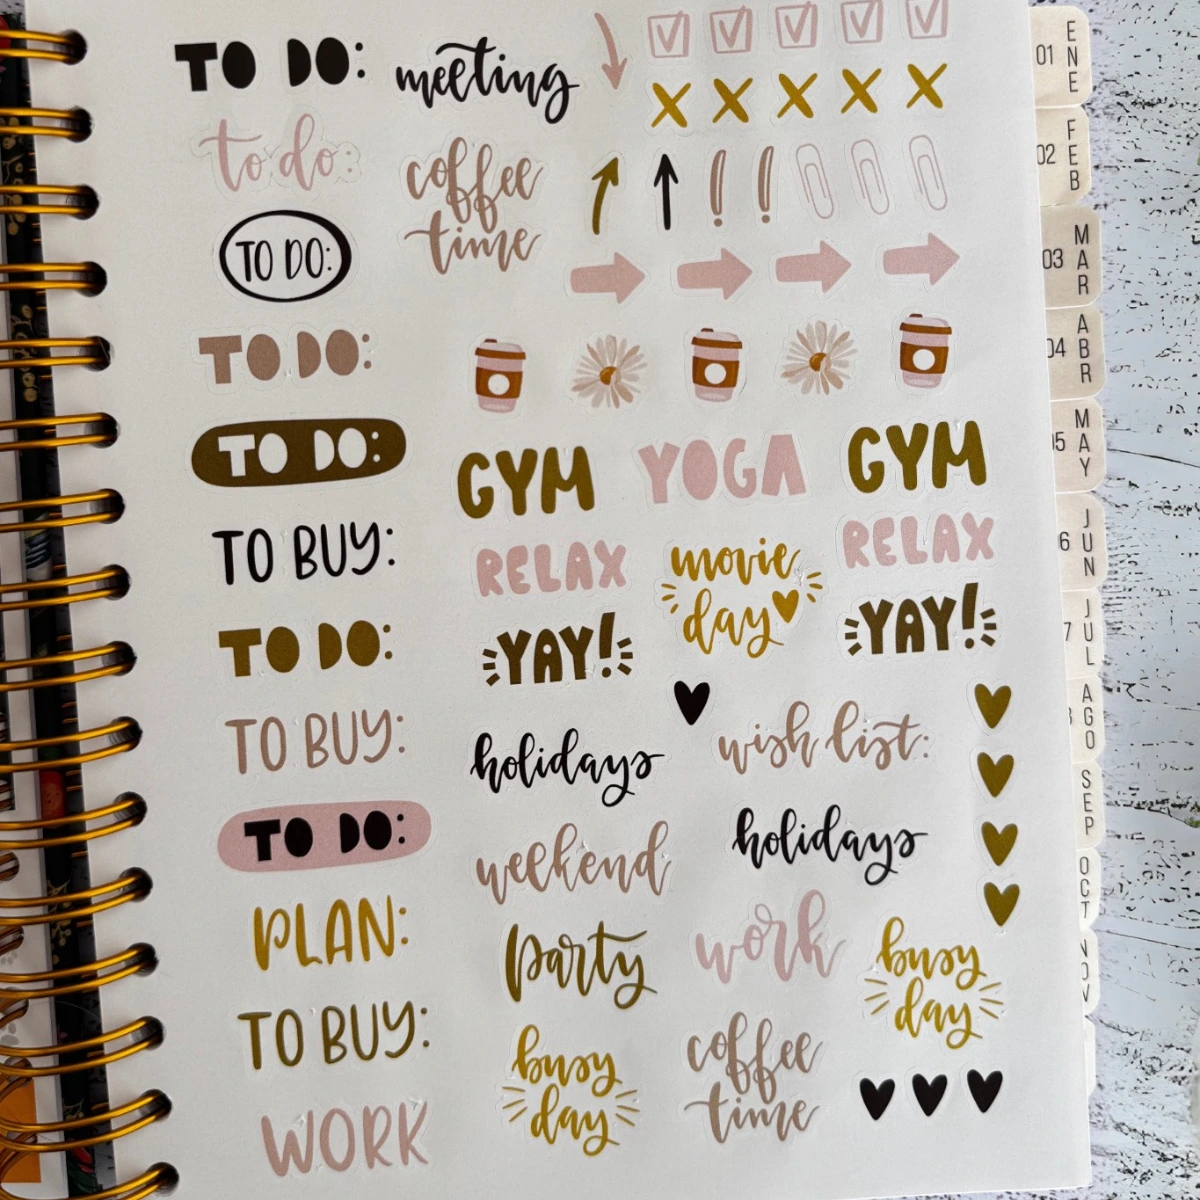 TO DO:
meeting
to do:
coffee
time
TO DO:
TO DO:
TO DO:
GYM
YOGA
GYM
TO BUY:
RELAX
movie
day
RELAX
TO DO:
YAY!
YAY!
TO BUY:
holidays
wish list:
TO DO:
weekend
holidays
PLAN:
party
work
busy
day
TO BUY:
busy
day
coffee
time
WORK
01 ENE
02 FEB
03 MAR
04 ABR
05 MAY
6 JUN
7 JUL
AGO
SEP
OCT
NOV